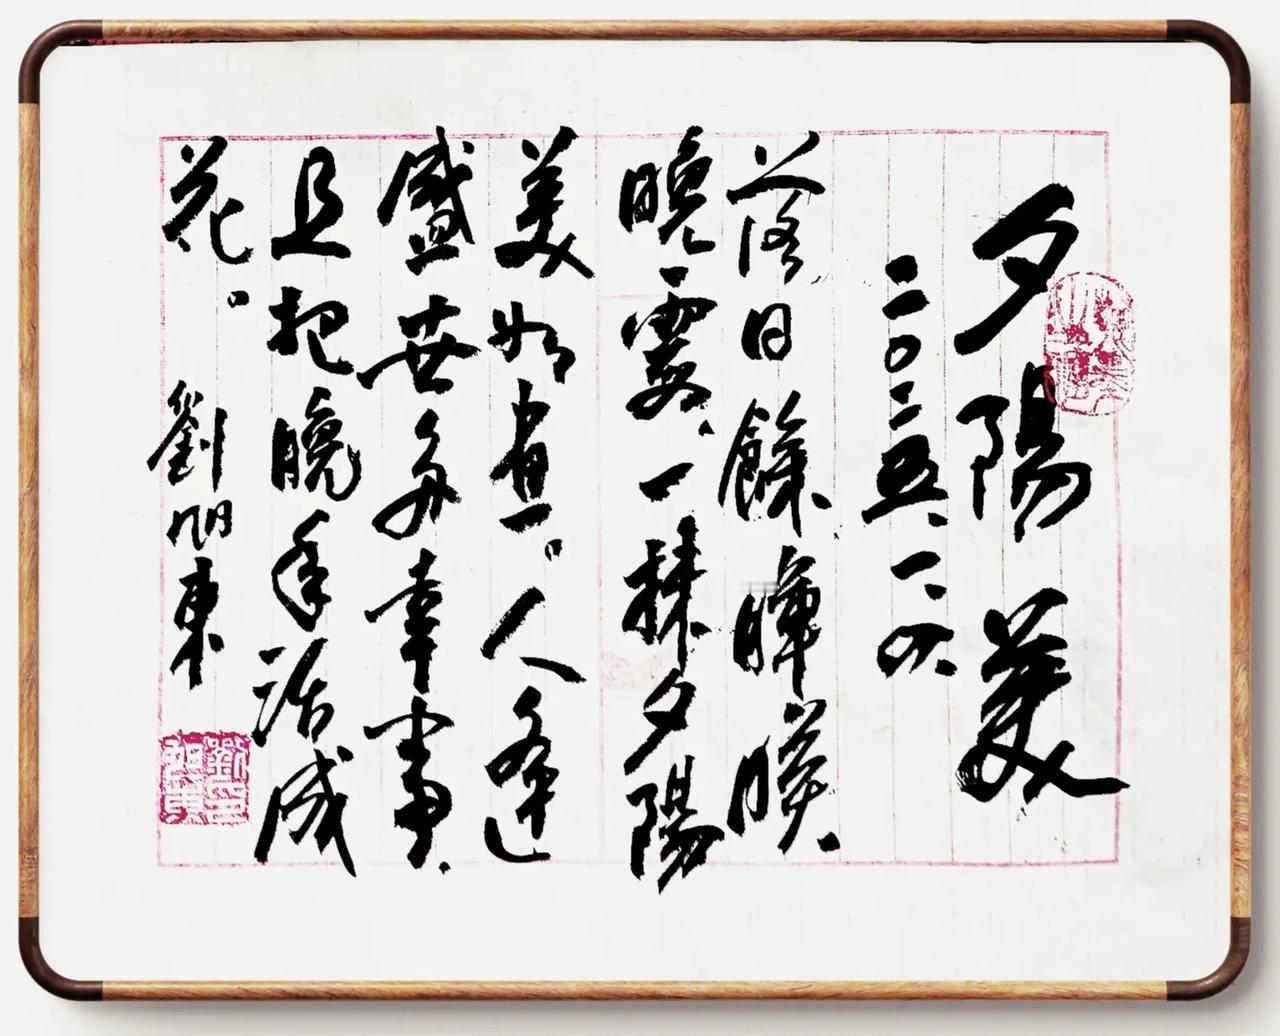 夕陽美
二〇二五、一、六
落日餘暉暎
晚霞、一抹夕陽
美如畫。人逢
盛世多幸事、
且把晚年活成
花。
劉旭東
劉印旭東